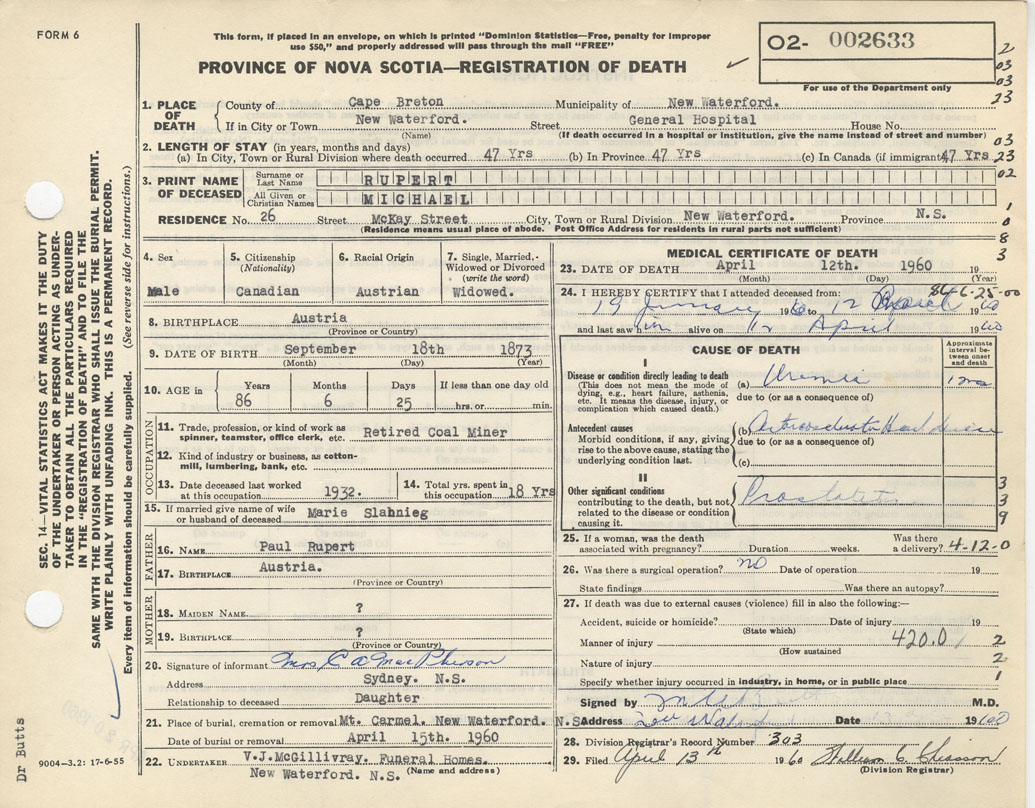 FORM 6
This form, if placed in an envelope, on which is printed "Dominion Statistics—Free, penalty for improper
use $50," and properly addressed will pass through the mail "FREE"
PROVINCE OF NOVA SCOTIA—REGISTRATION OF DEATH
O2- 002633
For use of the Department only
2
03
03
23
03
23
02
1
0
8
3
1. PLACE OF DEATH
County of Cape Breton Municipality of New Waterford.
If in City or Town New Waterford. Street General Hospital House No.
(Name) (If death occurred in a hospital or institution, give the name instead of street and number)
2. LENGTH OF STAY (in years, months and days)
(a) In City, Town or Rural Division where death occurred 47 Yrs (b) In Province 47 Yrs (c) In Canada (if immigrant 47 Yrs
3. PRINT NAME OF DECEASED
Surname or Last Name RUPERT
All Given or Christian Names MICHAEL
RESIDENCE No. 26 Street McKay Street City, Town or Rural Division New Waterford. Province N.S.
(Residence means usual place of abode. Post Office Address for residents in rural parts not sufficient)
4. Sex
Male
5. Citizenship
(Nationality)
Canadian
6. Racial Origin
Austrian
7. Single, Married,
Widowed or Divorced
(write the word)
Widowed.
8. BIRTHPLACE Austria
(Province or Country)
9. DATE OF BIRTH September 18th 1873
(Month) (Day) (Year)
10. AGE in Years Months Days If less than one day old
86 6 25 hrs. or min.
OCCUPATION
11. Trade, profession, or kind of work as
spinner, teamster, office clerk, etc. Retired Coal Miner
12. Kind of industry or business, as cotton-
mill, lumbering, bank, etc.
13. Date deceased last worked
at this occupation 1932.
14. Total yrs. spent in
this occupation 18 Yrs
15. If married give name of wife
or husband of deceased Marie Slahnieg
FATHER
16. NAME Paul Rupert
17. BIRTHPLACE Austria.
(Province or Country)
MOTHER
18. MAIDEN NAME ?
19. BIRTHPLACE ?
(Province or Country)
20. Signature of informant Mrs C A MacPherson
Address Sydney. N.S.
Relationship to deceased Daughter
21. Place of burial, cremation or removal Mt. Carmel. New Waterford. N.S.
Date of burial or removal April 15th. 1960
22. UNDERTAKER V.J.McGillivray. Funeral Homes.
New Waterford. N.S. (Name and address)
MEDICAL CERTIFICATE OF DEATH
23. DATE OF DEATH April 12th. 1960 19
(Month) (Day) (Year)
24. I HEREBY CERTIFY that I attended deceased from: 86-6-25-00
19 January 1960 to 12 19 60
and last saw him alive on 12 April 1960
CAUSE OF DEATH
Approximate interval between onset and death
I
Disease or condition directly leading to death
(This does not mean the mode of
dying, e.g., heart failure, asthenia,
etc. It means the disease, injury, or
complication which caused death.)
(a) Uremia
due to (or as a consequence of)
Antecedent causes
Morbid conditions, if any, giving
rise to the above cause, stating the
underlying condition last.
(b) Heart disease
due to (or as a consequence of)
(c)
II
Other significant conditions
contributing to the death, but not
related to the disease or condition
causing it.
3
3
9
25. If a woman, was the death
associated with pregnancy? Duration weeks. Was there a delivery?
4-12-0
26. Was there a surgical operation? no Date of operation 19
State findings Was there an autopsy?
27. If death was due to external causes (violence) fill in also the following:—
Accident, suicide or homicide? Date of injury 19
(State which)
Manner of injury 420.0 2
(How sustained
Nature of injury 2
Specify whether injury occurred in industry, in home, or in public place 1
Signed by M.D.
Address New Waterford Date 1960
28. Division Registrar's Record Number 303
29. Filed April 13th 1960 William C Chiasson
(Division Registrar)
SEC. 14—VITAL STATISTICS ACT MAKES IT THE DUTY
OF THE UNDERTAKER OR PERSON ACTING AS UNDER-
TAKER TO OBTAIN ALL THE PARTICULARS REQUIRED
IN THE "REGISTRATION OF DEATH" AND TO FILE THE
SAME WITH THE DIVISION REGISTRAR WHO SHALL ISSUE THE BURIAL PERMIT.
WRITE PLAINLY WITH UNFADING INK. THIS IS A PERMANENT RECORD.
Every item of information should be carefully supplied. (See reverse side for instructions.)
Dr Butts
9004-3.2: 17-6-55